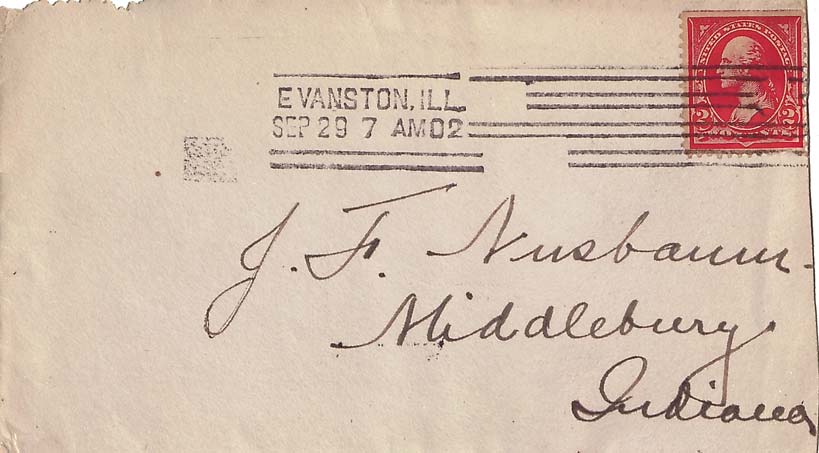 UNITED STATES POSTAGE
2 2
EVANSTON, ILL.
SEP 29 7 AM 02
J. F. Nusbaum.
Middlebury
Indiana